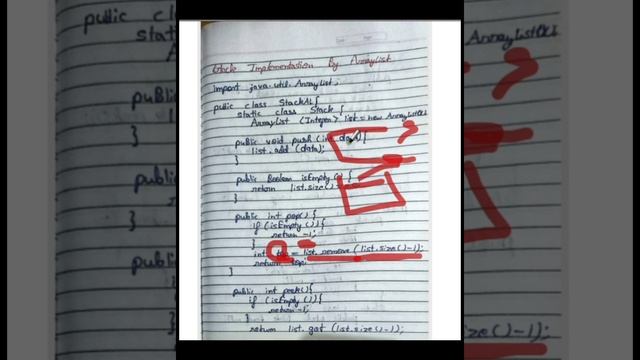 Stack Implementation By ArrayList
import java.util.ArrayList;
public class StackAL{
static class Stack {
ArrayList <Integer> list = new ArrayList<>();
public void push (int data){
list.add (data);
}
public Boolean isEmpty () {
return list.size() ==
}
public int pop() {
if (isEmpty()){
return -1;
}
int top = list.remove (list.size()-1);
return top;
}
public int peek(){
if (isEmpty ()){
return -1;
}
return list.get (list.size()-1);